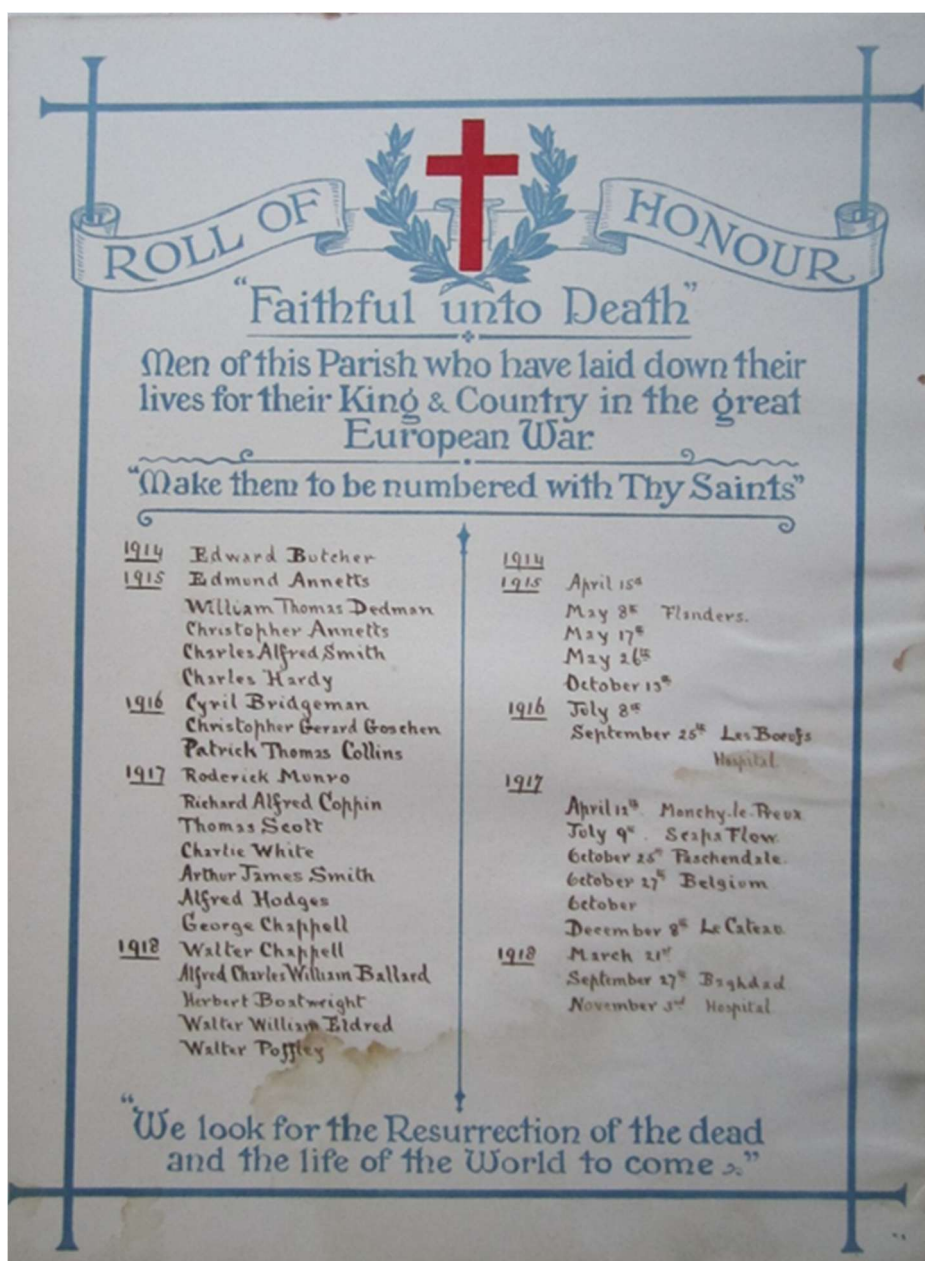 ROLL OF HONOUR
"Faithful unto Death"
Men of this Parish who have laid down their
lives for their King & Country in the great
European War.
"Make them to be numbered with Thy Saints"
1914 Edward Butcher
1915 Edmund Annetts
William Thomas Dedman
Christopher Annetts
Charles Alfred Smith
Charles Hardy
1916 Cyril Bridgeman
Christopher Gerard Goschen
Patrick Thomas Collins
1917 Roderick Munro
Richard Alfred Coppin
Thomas Scott
Charlie White
Arthur James Smith
Alfred Hodges
George Chappell
1918 Walter Chappell
Alfred Charles William Ballard
Herbert Boatwright
Walter William Eldred
Walter Poffley
1914
1915 April 15th
May 8th Flanders.
May 17th
May 26th
October 13th
1916 July 8th
September 25th Les Boeufs
Hospital
1917
April 12th Monchy-le-Preux
July 9th. Scapa Flow.
October 26th Paschendale.
October 27th Belgium
October
December 8th Le Cateau.
1918 March 21st
September 27th Baghdad
November 3rd Hospital
"We look for the Resurrection of the dead
and the life of the World to come."